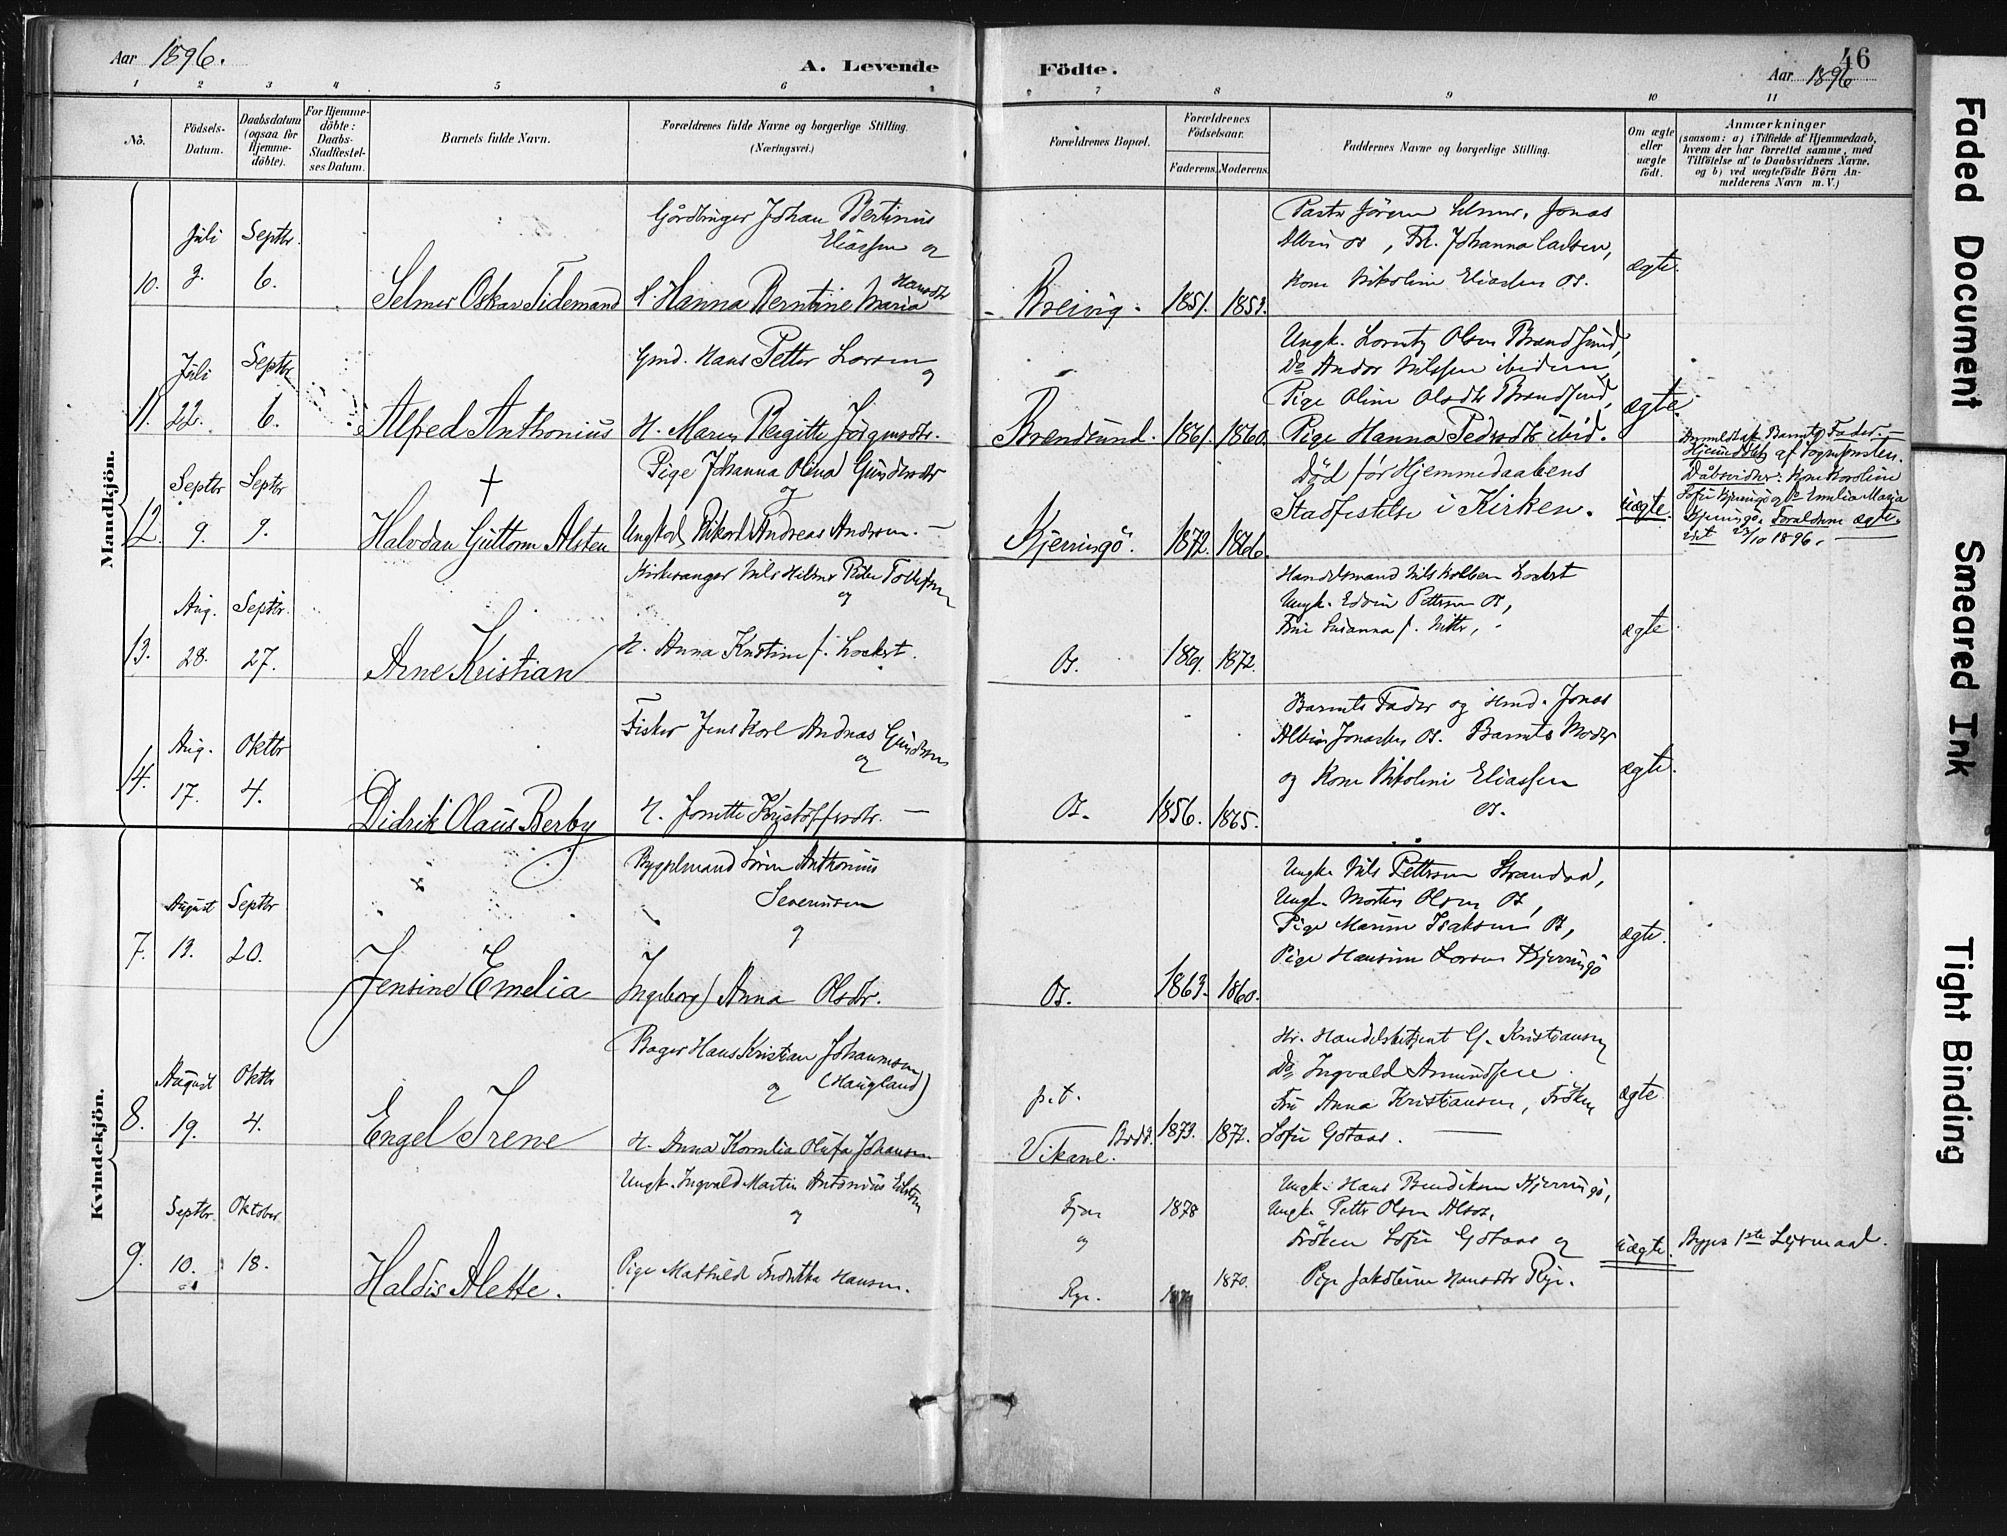 Aar 1896.
A. Levende Födte.
46
Aar 1896
1 2 3 4 5 6 7 8 9 10 11
No.
Födsels-Datum.
Daabsdatum (ogsaa for Hjemme-döbte).
For Hjemme-döbte: Daabs-Stadfæstel-ses Datum.
Barnets fulde Navn.
Forældrenes fulde Navne og borgerlige Stilling. (Næringsvei.)
Forældrenes Bopæl.
Forældrenes Födselsaar.
Faderens. Moderens.
Faddernes Navne og borgerlige Stilling.
Om ægte eller uægte födt.
Anmærkninger
(saasom: a) i Tilfælde af Hjemmedaab, hvem der har forrettet samme, med Tilföielse af to Daabsvidners Navne. og b) ved uægtefödte Börn An-melderens Navn m. V.)
Mandkjön.
10.
Juli 3.
Septbr. 6.
Selmer Oskar Tidemand
Gårdbruger Johan Bertinius
Eliassen og
H. Hanna Berntine Maria Hansdtr
Breivig.
1851. 1853.
Jonas
Albin Os, Frk. Johanna
Kone Nikoline Eliassen Os.
ægte.
11.
Juli 22.
Septbr 6.
Alfred Anthonius
Gmd. Hans Petter Larsen
og
H. Maren Bergitte Jörgensdtr.
Brendsund.
1861. 1860.
Ungk. Lorentz Olsen Brendsund,
Do Andor Nilssen ibidem,
Pige Oline Olsdtr Brendsund,
Pige Hanna Pedersdtr ibid.
ægte.
12.
Septbr 9.
Septbr 9.
Halvdan Guttorm Alsten
Pige Johanna Olina Gundersdtr
og
Ungkarl Rikard Andreas Andersen.
Kjerringö.
1872. 1866.
Död för Hjemmedaabens
Stadfestelse i Kirken.
uægte.
Barnets Fader.
Hjemmedöbt af Sognepresten.
Dåbsvidner: Kone Karoline
Sofie Kjerringö og Do Emelia Maria
Kjerringö. Forældrene ægte-
viet /10 1896.
13.
Aug. 28.
Septbr. 27.
Arne Kristian
Kirkesanger Nils Hilmer Peder Tollefsen
og
H. Anna Kristine f. Lockert.
Os.
1869. 1872.
Handelsmand Nils Lockert
Ungk. Edvin Pettersen Os,
Susanna f.
ægte
14.
Aug. 17.
Oktbr 4.
Didrik Olaus Berby
Fisker Jens Karl Andreas Gundersen
og
H. Jonette Kristoffersdtr.
Os.
1856. 1865.
Barnets Fader og Gmd. Jonas
Albin Jonassen Os. Barnets Moder
og Kone Nikoline Eliassen
Os.
ægte.
Kvindekjön.
7.
August 13.
Septbr 20.
Jensine Emelia
Bygselmand Sören Anthonius
Severinsen
og
Ingeborg Anna Olsdtr.
Os.
1863. 1860.
Ungk. Nils Pettersen Strandaa,
Ungk. Morten Olsen Os,
Pige Marine Isaksen Os,
Pige Hansine Larsen Kjerringö
ægte.
8.
August 19.
Oktbr 4.
Engel Irene
Bager Hans Kristian Johannesen
og (Haugland)
H. Anna Kornelia Olufa Johansen
p.t.
Vikane. Bodö.
1873. 1872.
Hr. Handelsbetjent G. Kristiansen
Do, Ingvald Amundsen
Fru Anna Kristiansen, Fröken
Sofie Götaas.
ægte.
9.
Septbr. 10.
Oktober. 18.
Haldis Alette.
Ungk. Ingvald Martin Antonius
og
Pige Mathilde Fredrikka Hansen.
Fjær
og
Rye.
1878
1870.
Ungk. Hans Bendiksen Kjerringö,
Ungk. Petter Olsen Alsos,
Fröken Sofie Götaas og
Pige Jakobine Hansdtr Rye.
uægte.
Begges 1ste Leiermaal.
Faded Document
Smeared Ink
Tight Binding